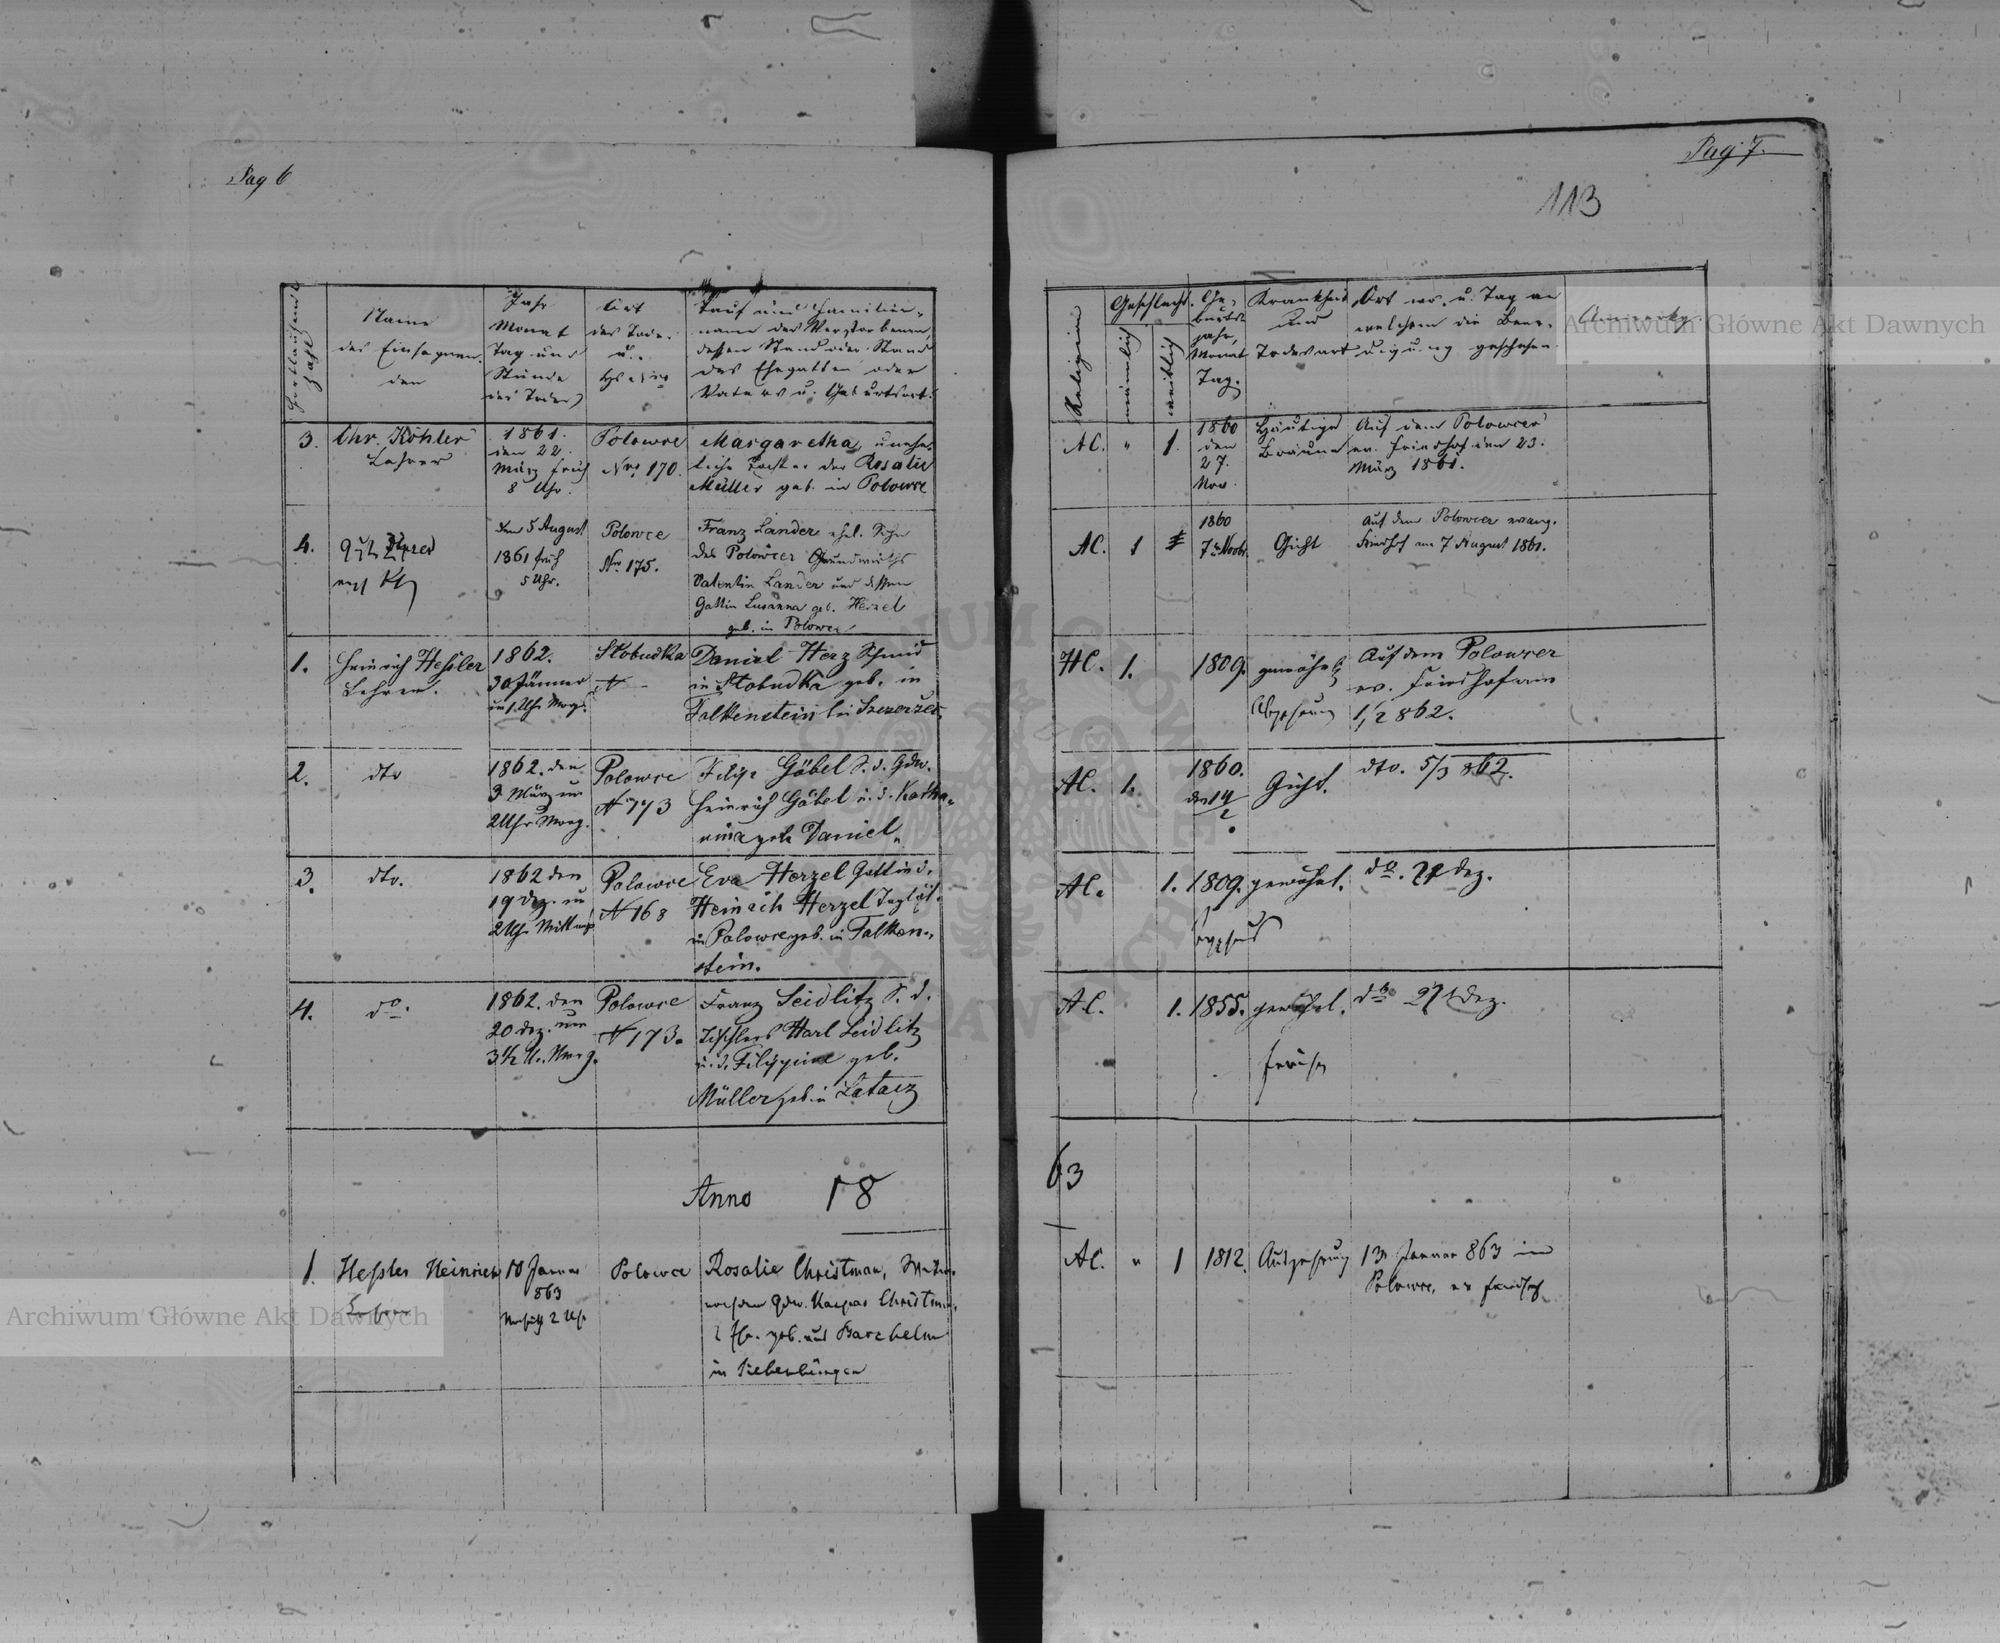 Pag 6
Fortlaufende Zahl
Name
des Einsegnen-
den
Jahr
Monat
Tag und
Stunde
des Todes
Ort
des Todes
u.
Hs Nro
Tauf und Familien-
name des Verstorbenen,
dessen Stand oder Stand
des Ehegatten oder
Vaters u. Geburtsort.
3.
Chr. Köhler
Lehrer
1861.
den 22.
März früh
8 Uhr.
Polowce
Nro 170.
Margaretha, unehe-
liche Tochter der Rosalie
Müller geb. in Polowce
4.
den 5 August
1861 früh
5 Uhr.
Polowce
Nr. 175.
Franz Lander ehel. Sohn
des Polowcer Grundwirths
Valentin Lander und dessen
Gattin Susanna geb. Herzel
geb. in Polowce
1.
Heinrich Heßler
Lehrer.
1862.
30 Jänner
um 1 Uhr Morgs.
Slobudka
N —
Daniel Herz Schmid
in Slobudka geb. in
Falkenstein bei Szczerzec.
2.
dto
1862. den
3. März um
2 Uhr Morg.
Polowce
N 173
Filip Göbel S. d. Gdw.
Heinrich Göbel u. d. Katha-
rina geb. Daniel.
3.
dto.
1862 den
19 Dez. um
2 Uhr Mittag
Polowce
N 168
Eva Herzel Gattin d.
Heinrich Herzel Taglöh.
in Polowce geb. in Falken-
stein.
4.
do.
1862. den
20 Dez. um
3 1/2 U. Morg.
Polowce
N 173.
Franz Seidlitz S. d.
Tischlers Karl Seidlitz
u. d. Filippine geb.
Müller geb. in Latacz
Anno 18
1.
Heßler Heinrich
Lehrer
10 Januar
863
2 Uhr
Polowce
Rosalie Christman,
Gdw. Kaspar Christman,
geb. aus
in Siebenbürgen
Pag. 7.
113
Religion
Geschlecht
männlich
weiblich
Ge-
burts-
jahr,
Monat
Tag.
Krankheit
und
Todesart
Ort wo u. Tag an
welchem die Beer-
digung geschehen.
Anmerkg.
AC.
"
1.
1860
den
27.
Nov.
Häutige
Bräune
Auf dem Polowcer
ev. Friedhof den 23.
März 1861.
AC.
1
1860
7t Novbr.
Gicht
auf dem Polowcer evang.
Friedhof am 7 August 1861.
HC.
1.
1809.
gewöhnl.
Abzehrung
Auf dem Polowcer
ev. Friedhof am
1/2 862.
AC.
1.
1860.
den 14/2
Gicht.
dto. 5/3 862.
AC.
1.
1809.
gewöhnl.
do. 21 Dez.
AC.
1.
1855.
gewöhnl.
do 21t Dez.
63
AC.
"
1
1812.
Auszehrung
13 Januar 863 in
Polowce, ev Friedhof
Archiwum Główne Akt Dawnych
Archiwum Główne Akt Dawnych
ARCHIWUM GŁÓWNE AKT DAWNYCH